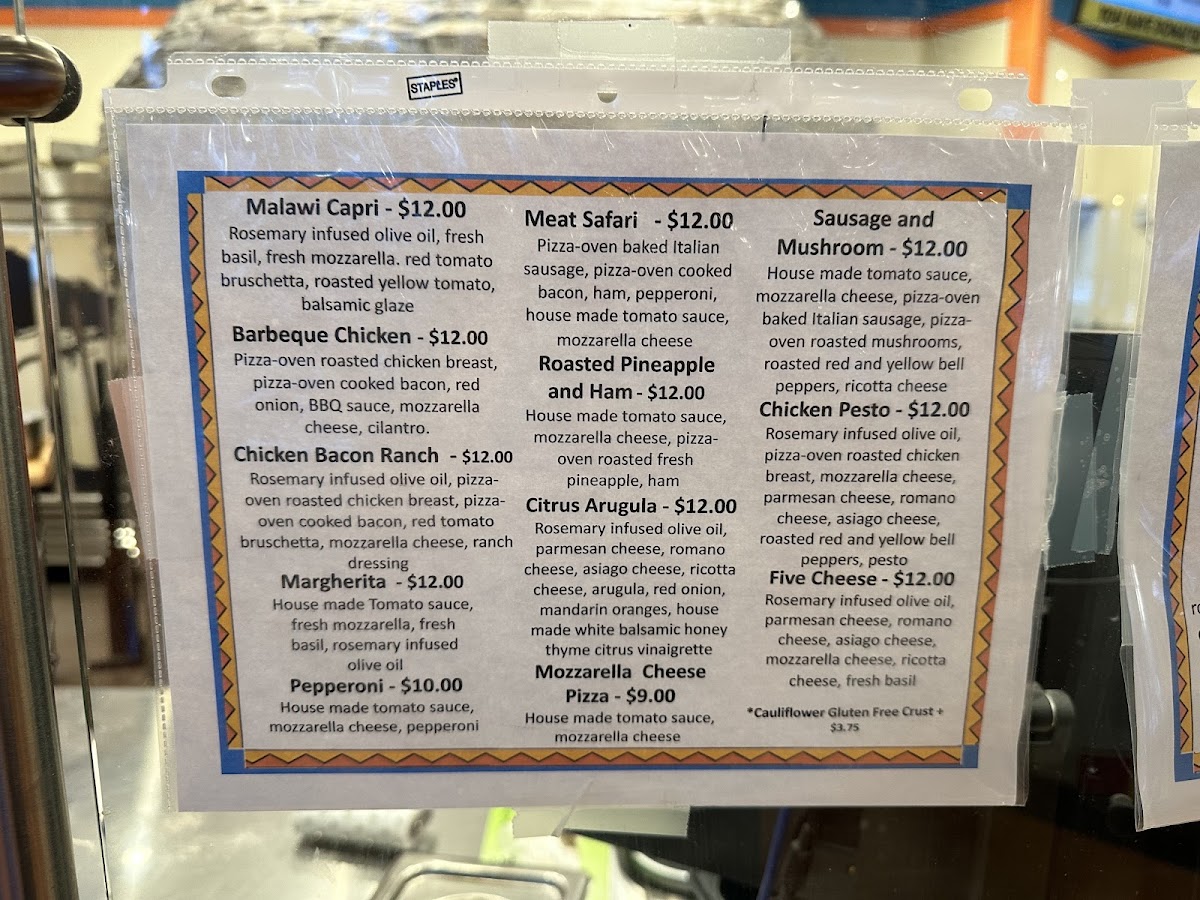 STAPLES
Malawi Capri - $12.00
Rosemary infused olive oil, fresh
basil, fresh mozzarella. red tomato
bruschetta, roasted yellow tomato,
balsamic glaze
Barbeque Chicken - $12.00
Pizza-oven roasted chicken breast,
pizza-oven cooked bacon, red
onion, BBQ sauce, mozzarella
cheese, cilantro.
Chicken Bacon Ranch - $12.00
Rosemary infused olive oil, pizza-
oven roasted chicken breast, pizza-
oven cooked bacon, red tomato
bruschetta, mozzarella cheese, ranch
dressing
Margherita - $12.00
House made Tomato sauce,
fresh mozzarella, fresh
basil, rosemary infused
olive oil
Pepperoni - $10.00
House made tomato sauce,
mozzarella cheese, pepperoni
Meat Safari - $12.00
Pizza-oven baked Italian
sausage, pizza-oven cooked
bacon, ham, pepperoni,
house made tomato sauce,
mozzarella cheese
Roasted Pineapple
and Ham - $12.00
House made tomato sauce,
mozzarella cheese, pizza-
oven roasted fresh
pineapple, ham
Citrus Arugula - $12.00
Rosemary infused olive oil,
parmesan cheese, romano
cheese, asiago cheese, ricotta
cheese, arugula, red onion,
mandarin oranges, house
made white balsamic honey
thyme citrus vinaigrette
Mozzarella Cheese
Pizza - $9.00
House made tomato sauce,
mozzarella cheese
Sausage and
Mushroom - $12.00
House made tomato sauce,
mozzarella cheese, pizza-oven
baked Italian sausage, pizza-
oven roasted mushrooms,
roasted red and yellow bell
peppers, ricotta cheese
Chicken Pesto - $12.00
Rosemary infused olive oil,
pizza-oven roasted chicken
breast, mozzarella cheese,
parmesan cheese, romano
cheese, asiago cheese,
roasted red and yellow bell
peppers, pesto
Five Cheese - $12.00
Rosemary infused olive oil,
parmesan cheese, romano
cheese, asiago cheese,
mozzarella cheese, ricotta
cheese, fresh basil
*Cauliflower Gluten Free Crust +
$3.75